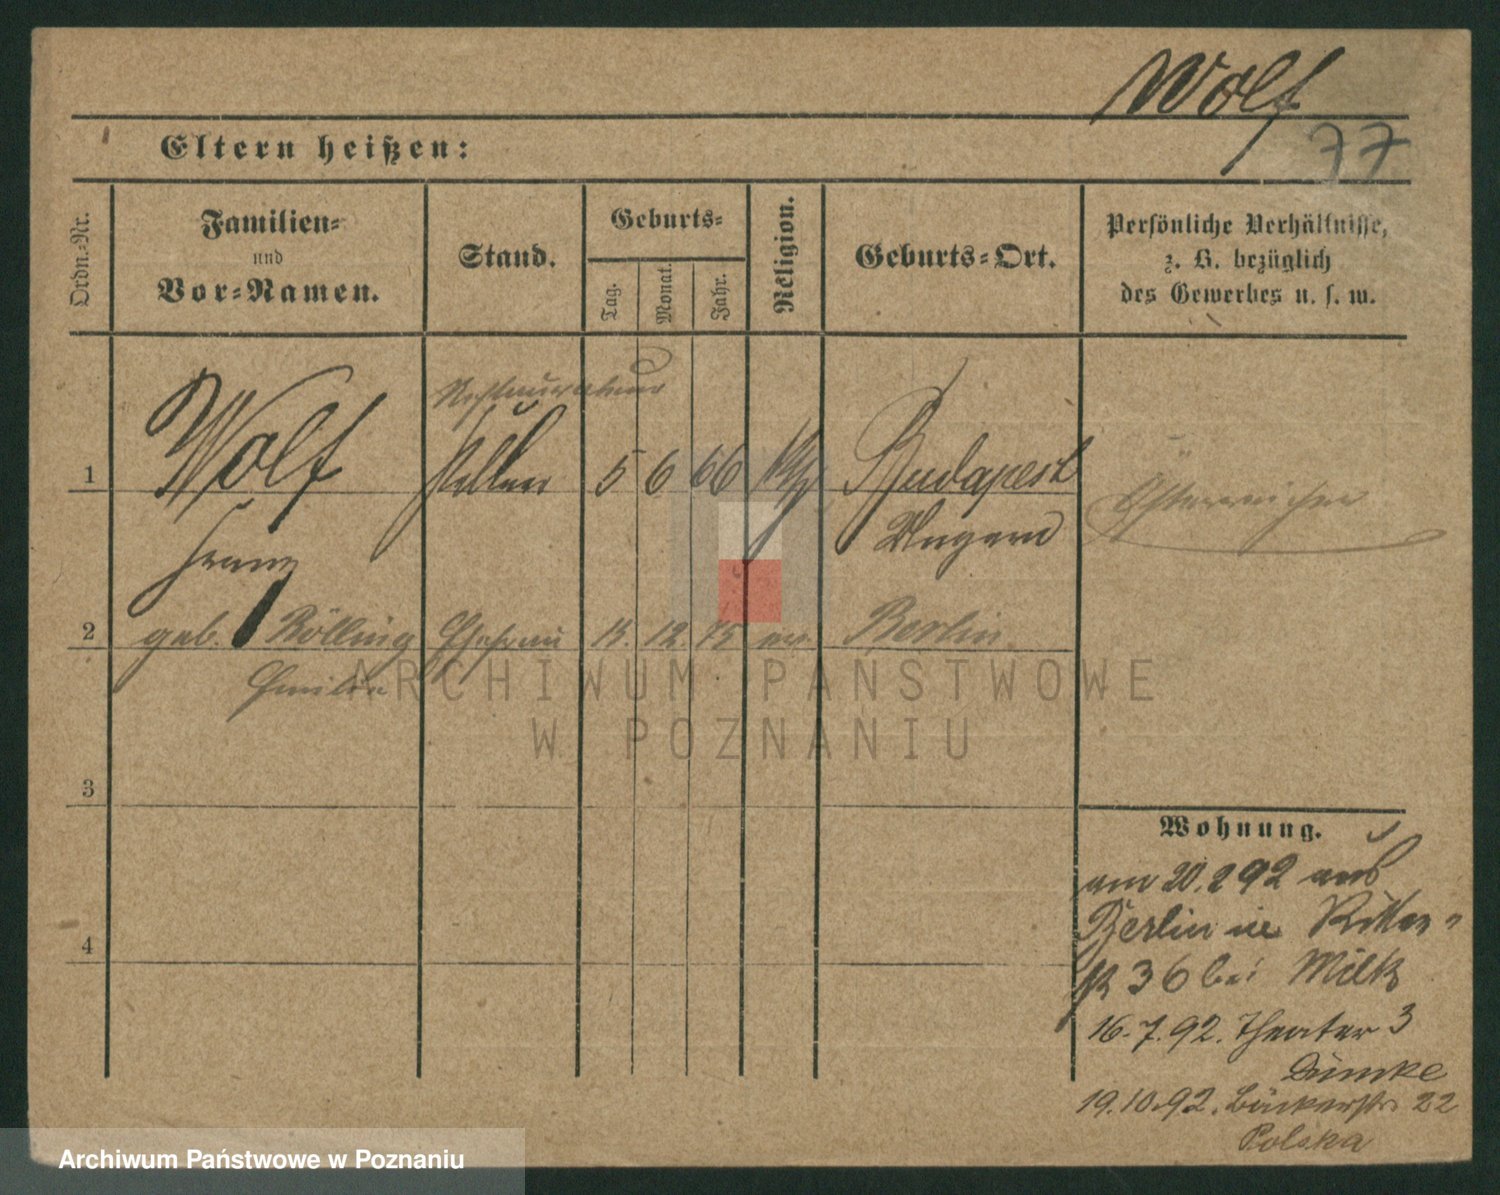 Wolf
77
Eltern heißen:
Ordn.-Nr.
Familien-
und
Vor-Namen.
Stand.
Geburts-
Tag.
Monat.
Jahr.
Religion.
Geburts-Ort.
Persönliche Verhältnisse,
z. B. bezüglich
des Gewerbes u. s. w.
Restaurateur
1 Wolf Kellner 5 6 66 Budapest
Ungarn
Österreicher
Franz
2 geb. Rölling Ehefrau 12. 75 ev. Berlin
Emilie
3
4
Wohnung.
am 20.2 92 aus
Berlin in Ritter-
str 36 bei Milk
16.7.92. Theater 3
Dümke
19.10.92. Bäckerstr. 22
Polska
ARCHIWUM PAŃSTWOWE
W POZNANIU
Archiwum Państwowe w Poznaniu